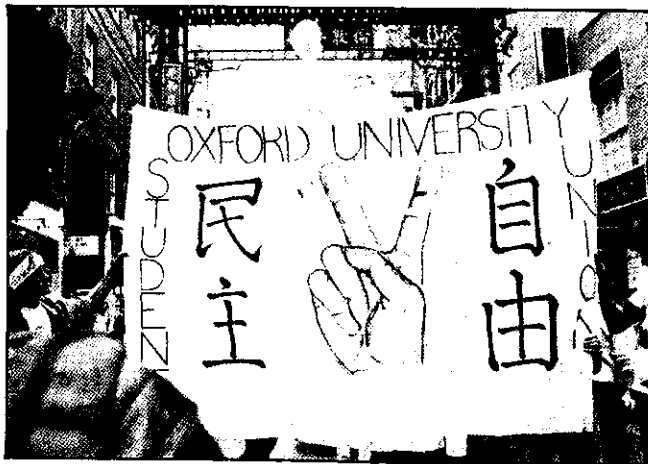 OXFORD UNIVERSITY
STUDENT
UNION
民主
自由